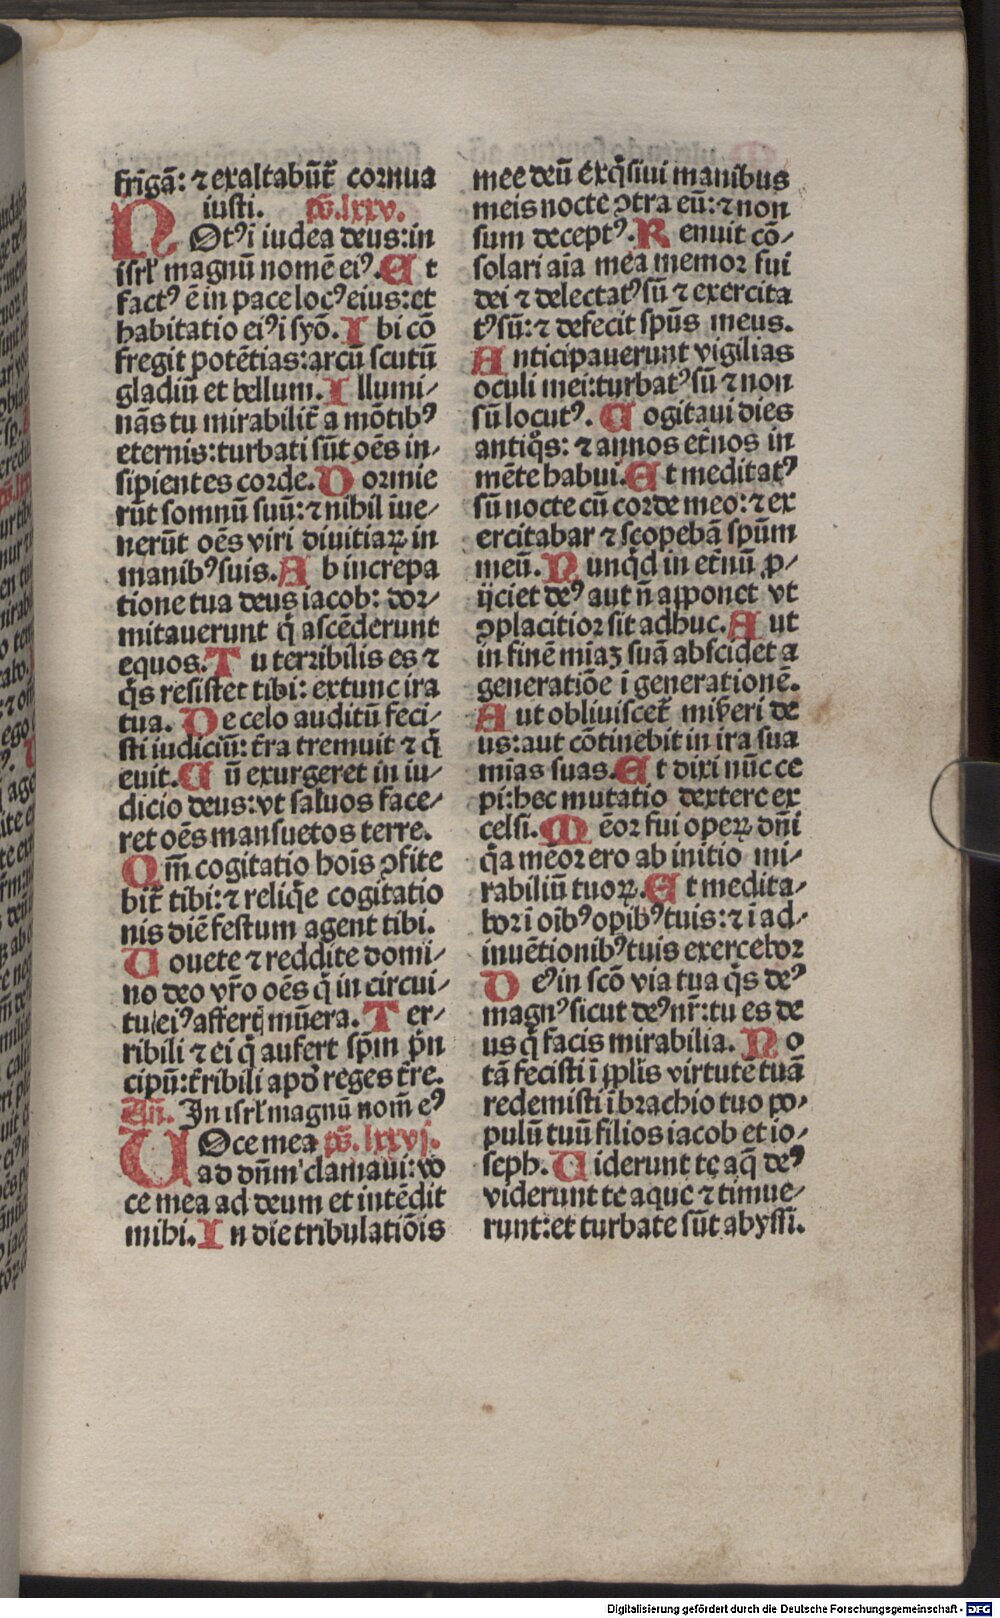 frīgā: ⁊ exaltabūt̄ cornua
iusti. ps̄.lxxv.
NOtꝰ ī iudea deus: in
isrł magnū nomē eiꝰ. Et
factꝰ ē in pace locꝰ eius: et
habitatio eiꝰ ī syō. Ibi cō
fregit potētias: arcū scutū
gladiū et bellum. Illumi/
nās tu mirabilit̄ a mōtibꝰ
eternis: turbati sūt oēs in/
sipientes corde. Dormie
rūt somnū suū: ⁊ nihil īue/
nerūt oēs viri diuitiaꝝ in
manibꝰ suis. Ab increpa
tione tua deus iacob: dor/
mitauerunt q̄ ascēderunt
equos. Tu terribilis es ⁊
q̄s resistet tibi: extunc ira
tua. De celo auditū feci/
sti iudiciū: t̄ra tremuit ⁊ q̄
euit. Cū exurgeret in iu/
dicio deus: vt saluos face/
ret oēs mansuetos terre.
Qm̄ cogitatio hoīs ꝯfite
bit̄ tibi: ⁊ reliq̄e cogitatio
nis diē festum agent tibi.
Uouete ⁊ reddite domi/
no deo vr̄o oēs q̄ in circui/
tu eiꝰ affert̄q mūera. Ter/
ribili ⁊ ei q̄ aufert sp̄m p̄n
cipū: t̄ribili apd̄ reges t̄re.
An̄. In isrł magnū nom̄ eꝰ
UOce mea ps̄.lxxvj.
ad dn̄m clamaui: vo
ce mea ad deum et intēdit
mihi. In die tribulatiōis
mee deū exq̄siui manibus
meis nocte ꝯtra eū: ⁊ non
sum deceptꝰ. Renuit cō/
solari aīa mea memor fui
dei ⁊ delectatꝰ sū ⁊ exercita
tꝰ sū: ⁊ defecit spūs meus.
Anticipauerunt vigilias
oculi mei: turbatꝰ sū ⁊ non
sū locutꝰ. Cogitaui dies
antiq̊s: ⁊ annos et̄nos in
mēte habui. Et meditatꝰ
sū nocte cū corde meo: ⁊ ex
ercitabar ⁊ scopebā spūm
meū. Nunqd̄ in et̄nū ꝓ/
ijciet deꝰ aut n̄ apponet vt
ꝯplacitior sit adhuc. Aut
in finē miaꝫ suā abscidet a
generatiōe ī generationē.
Aut obliuiscet̄ mis̄eri de
us: aut cōtinebit in ira sua
mīas suas. Et dixi nūc ce
pi: hec mutatio dextere ex
celsi. Mēor fui opeꝝ dn̄i
q̄a mēor ero ab initio mi/
rabiliū tuoꝝ. Et medita/
bor ī oībꝰ opībꝰ tuis: ⁊ ī ad/
inuētionibꝰ tuis exercebor
Deꝰ in scō via tua q̄s deꝰ
magnꝰ sicut deꝰ nr̄: tu es de
us q̄ facis mirabilia. No
tā fecisti ī pplīs virtutē tuā
redemisti ī brachio tuo po/
pulū tuū filios iacob et io/
seph. Uiderunt te aq̄ deꝰ
viderunt te aque ⁊ timue/
runt: et turbate sūt abyssi.
Digitalisierung gefördert durch die Deutsche Forschungsgemeinschaft - DFG